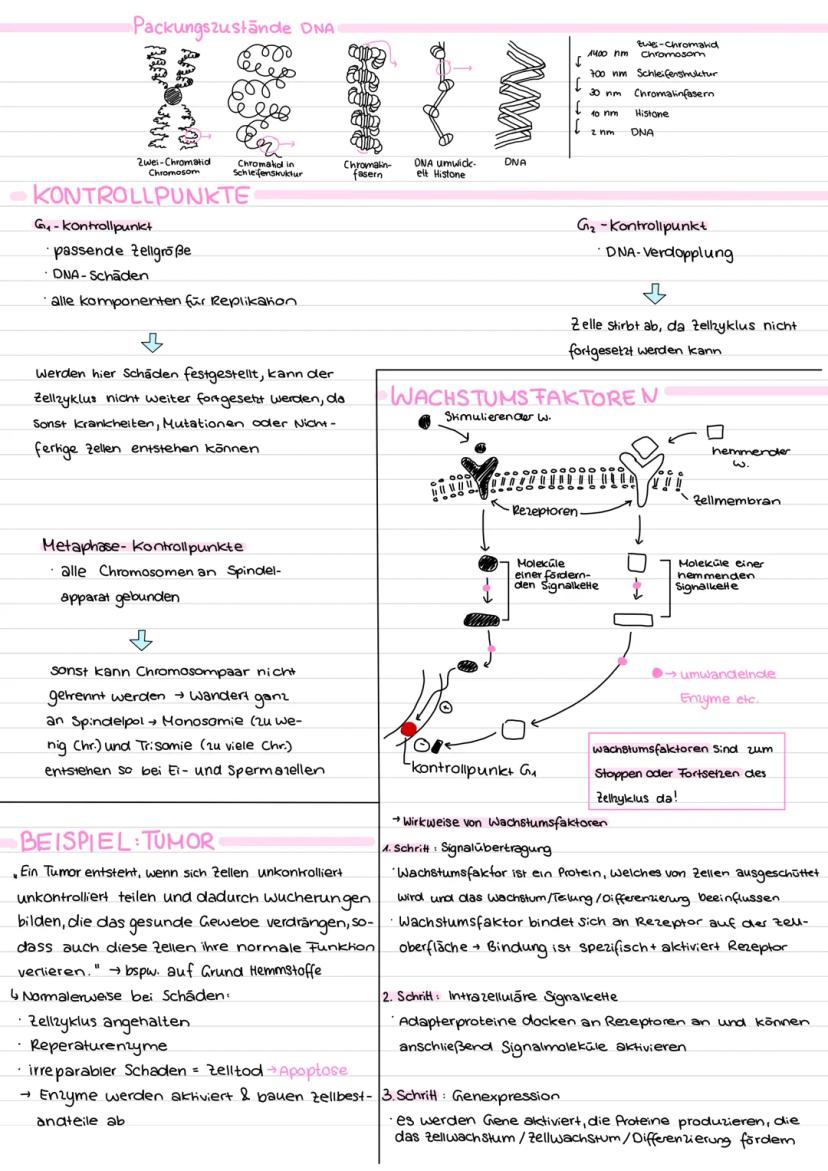 Packungszustände DNA
Zwei-Chromatid
Chromosom
Chromatid in
Schleifenstruktur
Chromatin-
fasern
DNA umwick-
elt Histone
DNA
1400 nm Zwei-Chromatid
Chromosom
700 nm Schleifenstruktur
30 nm Chromatinfasern
10 nm Histone
2 nm DNA
KONTROLLPUNKTE
G₁-Kontrollpunkt
· passende Zellgröße
· DNA-Schäden
· alle Komponenten für Replikation
Werden hier Schäden festgestellt, kann der
Zellzyklus nicht weiter fortgesetzt werden, da
sonst Krankheiten, Mutationen oder Nicht-
fertige Zellen entstehen können
G₂-Kontrollpunkt
· DNA-Verdopplung
Zelle stirbt ab, da Zellzyklus nicht
fortgesetzt werden kann
Metaphase-Kontrollpunkte
· alle Chromosomen an Spindel-
apparat gebunden
sonst kann Chromosompaar nicht
getrennt werden → Wandert ganz
an Spindelpol → Monosomie (zu we-
nig Chr.) und Trisomie (zu viele Chr.)
entstehen so bei Ei- und Spermazellen
WACHSTUMSFAKTOREN
Stimulierender W.
hemmender
W.
Zellmembran
Rezeptoren
Moleküle
einer fördern-
den Signalkette
Moleküle einer
hemmenden
Signalkette
→ umwandelnde
Enzyme etc.
+
-
Kontrollpunkt G₁
Wachstumsfaktoren sind zum
Stoppen oder Fortsetzen des
Zellzyklus da!
BEISPIEL: TUMOR
„Ein Tumor entsteht, wenn sich Zellen unkontrolliert
unkontrolliert teilen und dadurch Wucherungen
bilden, die das gesunde Gewebe verdrängen, so-
dass auch diese Zellen ihre normale Funktion
verlieren." → bspw. auf Grund Hemmstoffe
↳ Normalerweise bei Schäden:
· Zellzyklus angehalten
· Reperaturenzyme
· irreparabler Schaden = Zelltod → Apoptose
→ Enzyme werden aktiviert & bauen Zellbest-
andteile ab
→ Wirkweise von Wachstumsfaktoren
1. Schritt: Signalübertragung
· Wachstumsfaktor ist ein Protein, welches von Zellen ausgeschüttet
wird und das Wachstum/Teilung/Differenzierung beeinflussen
· Wachstumsfaktor bindet sich an Rezeptor auf der Zell-
oberfläche → Bindung ist spezifisch + aktiviert Rezeptor
2. Schritt: Intrazelluläre Signalkette
· Adapterproteine docken an Rezeptoren an und können
anschließend Signalmoleküle aktivieren
3. Schritt: Genexpression
· es werden Gene aktiviert, die Proteine produzieren, die
das Zellwachstum/Zellwachstum/Differenzierung fördern